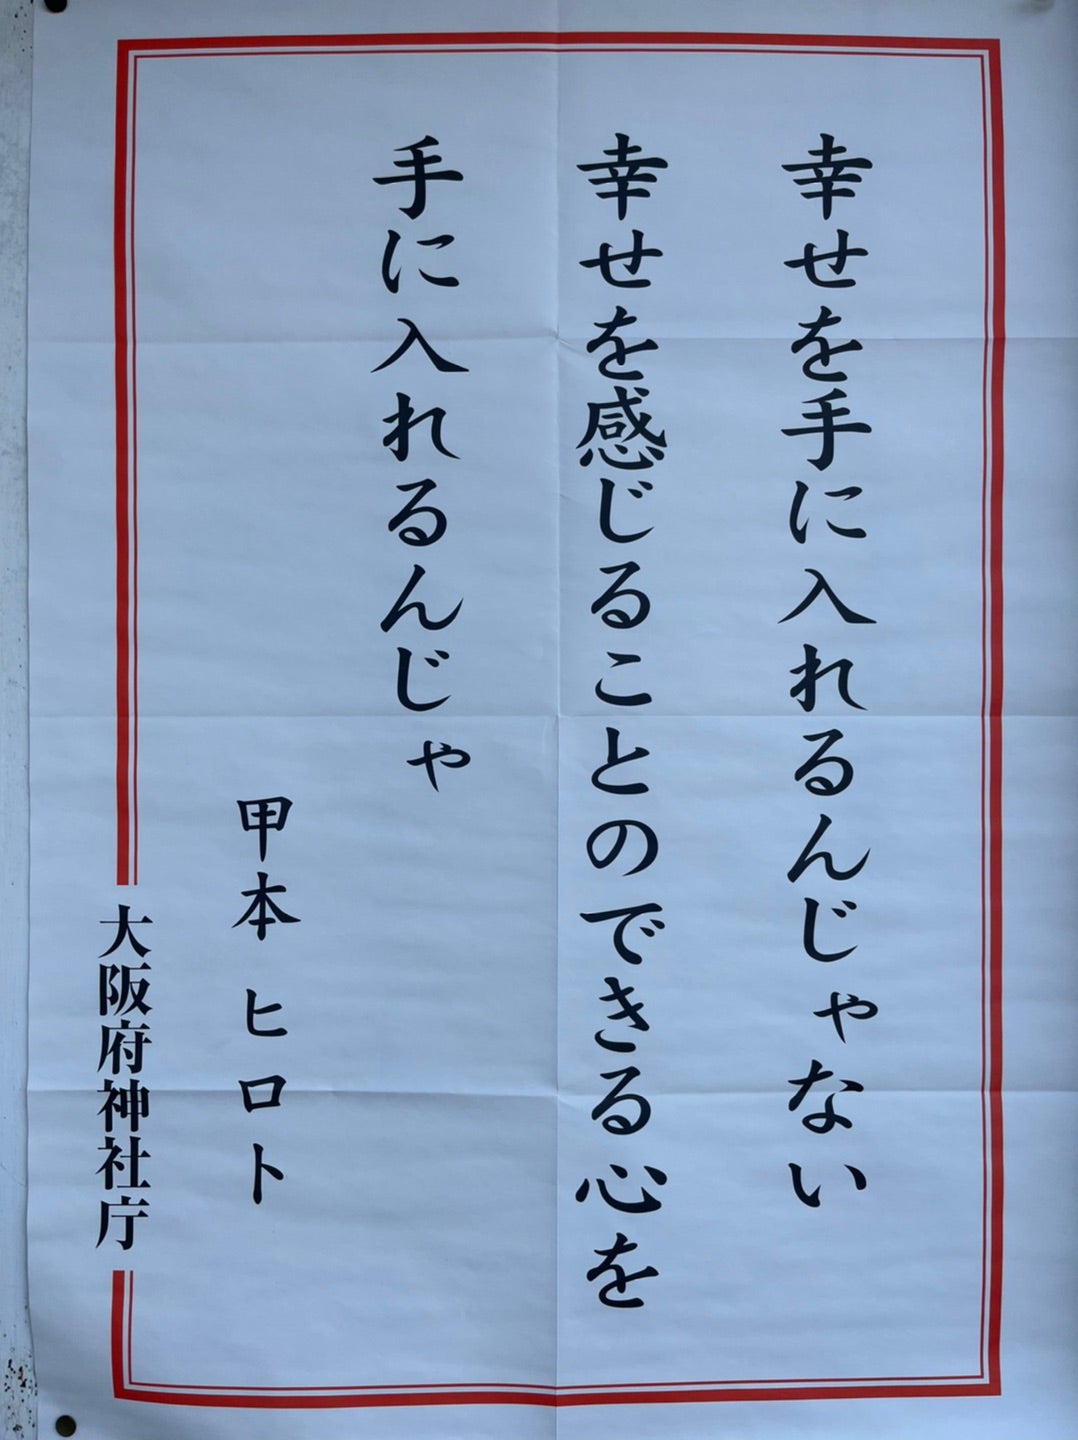 幸せを手に入れるんじゃない
幸せを感じることのできる心を
手に入れるんじゃ
甲本 ヒロト
大阪府神社庁